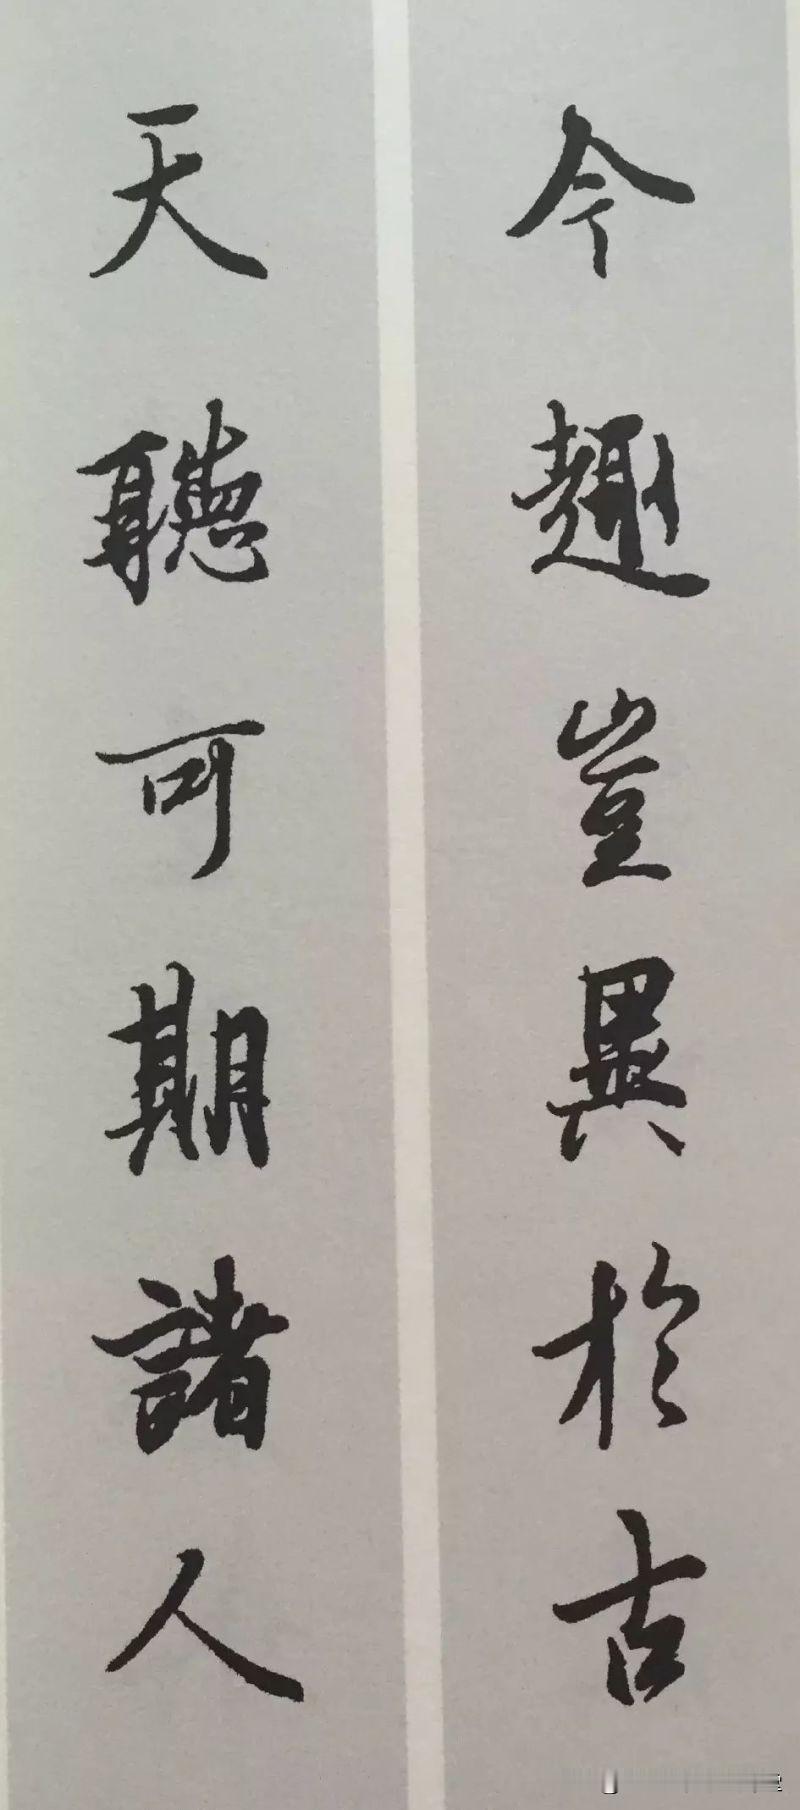 今趣豈異於古
天聽可期諸人